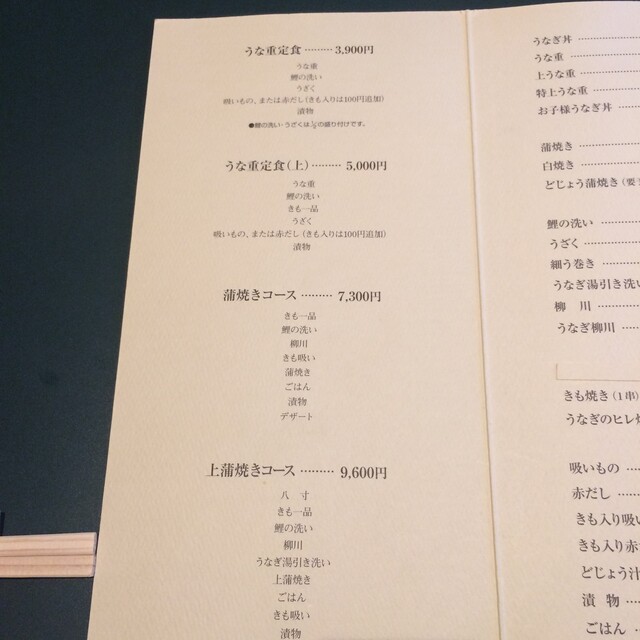 うな重定食 ……… 3,900円
うな重
鯉の洗い
うざく
吸いもの、または赤だし（きも入りは100円追加）
漬物
●鯉の洗い・うざくは½の盛り付けです。
うな重定食（上）……… 5,000円
うな重
鯉の洗い
きも一品
うざく
吸いもの、または赤だし（きも入りは100円追加）
漬物
蒲焼きコース ……… 7,300円
きも一品
鯉の洗い
柳川
きも吸い
蒲焼き
ごはん
漬物
デザート
上蒲焼きコース ……… 9,600円
八　寸
きも一品
鯉の洗い
柳川
うなぎ湯引き洗い
上蒲焼き
ごはん
きも吸い
漬物
うなぎ丼 ………
うな重 ………
上うな重 ………
特上うな重 ………
お子様うなぎ丼 ………
蒲焼き ………
白焼き ………
どじょう蒲焼き（要
鯉の洗い ………
うざく ………
細う巻き ………
うなぎ湯引き洗い
柳　川 ………
うなぎ柳川 ………
きも焼き（1串）
うなぎのヒレ
吸いもの ………
赤だし ………
きも入り吸い
きも入り赤
どじょう汁
漬　物 ………
ごはん ………